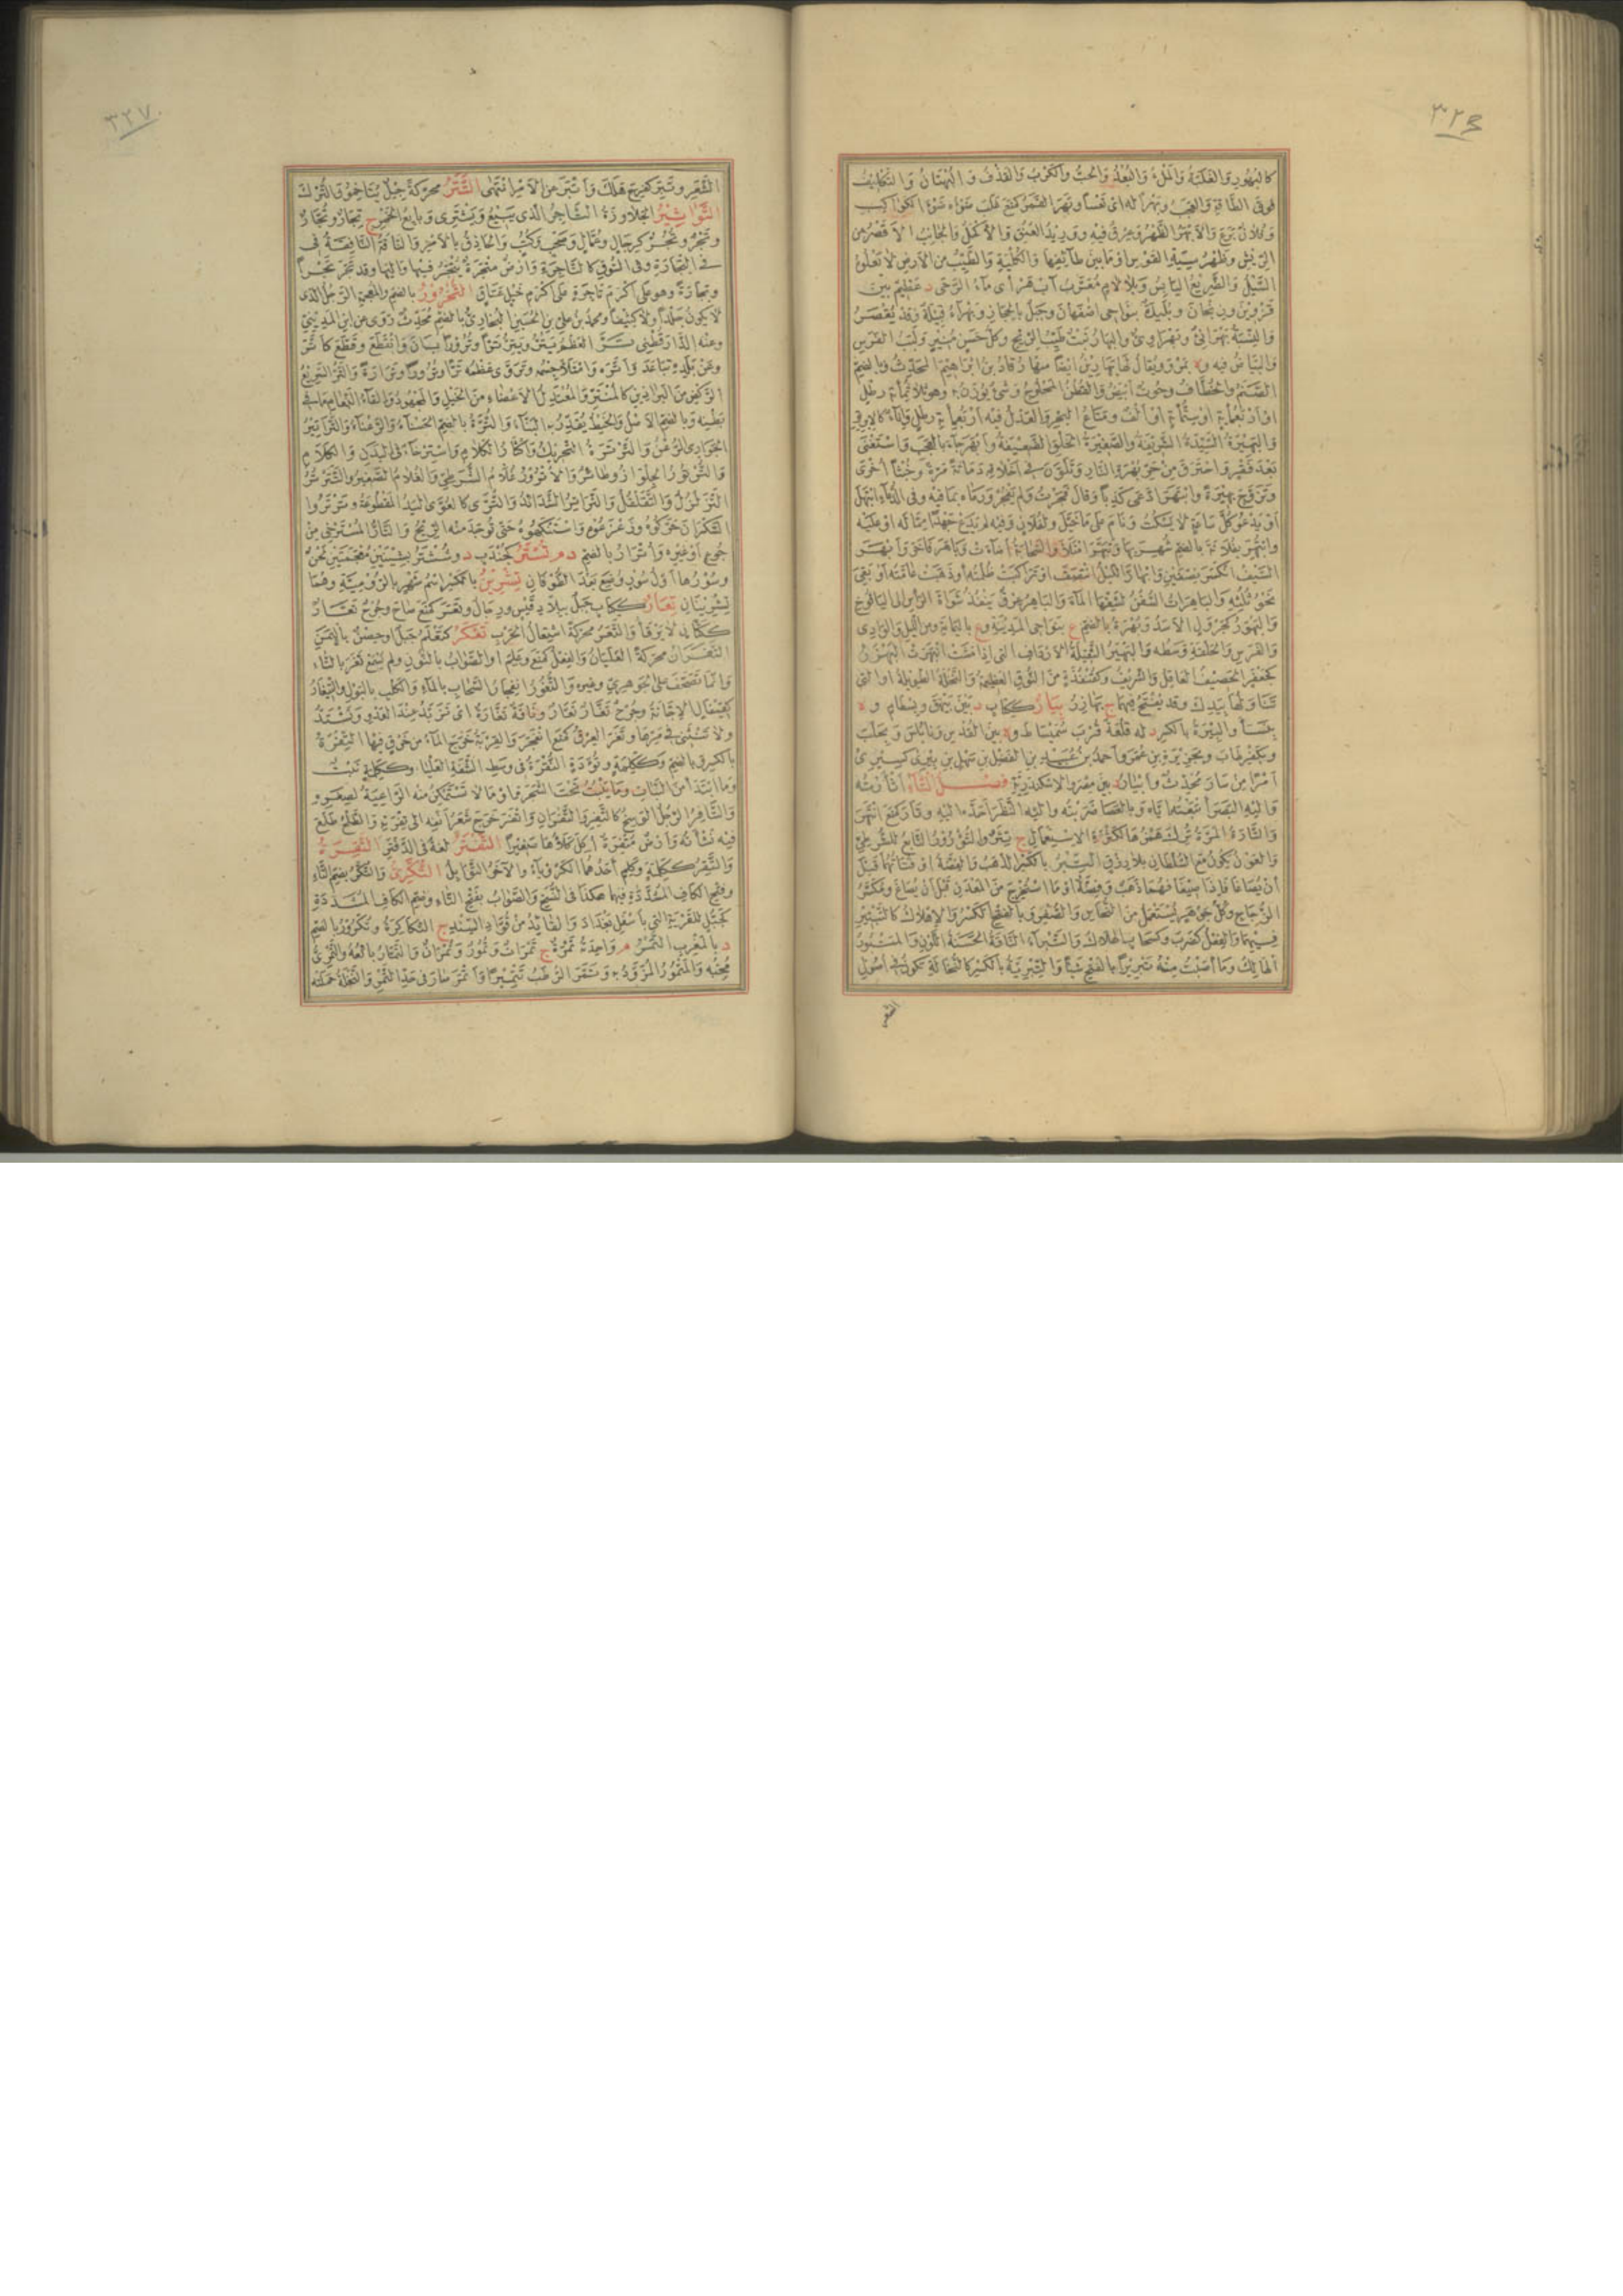 ٣٢٦
كالبهور والغلبة والملء والبعد والحب والكرب والقذف والبهتان والتكليف
فوق الطاقة والعجب وبهرا له اى تعسا وبهر القمر كمنع غلب ضوءه ضوء الكواكب
وفلان برع والابهر الظهر وعرق فيه ووريد العنق والاكحل والجانب الاقصر من
الريش وظهر سية القوس او ما بين طائفها والكلية والطيب من الارض لا يعلوه
السيل والضريع اليابس وبلا لام معرب آب هر اى ماء الرحى د عظيم بين
قزوين وزنجان وبليدة بنواحى اصفهان وجبل بالحجاز وبهراء قبيلة وقد يقصر
والنسبة بهرانى وبهراوى والبهار نبت طيب الريح وكل حسن منير ولبب الفرس
والبياض فيه وة بمرو ويقال لها بهارين ايضا منها رقاد بن ابراهيم المحدث وبالضم
الصنم والخطاف وحوت ابيض والقطن المحلوج وشئ يوزن به وهو ثلاثمائة رطل
او اربعمائة او ستمائة او الف ومتاع البحر والعدل فيه اربعمائة رطل واناء كالابريق
والبهيرة السيدة الشريفة والصغيرة الخلق الضعيفة وابهر جاء بالعجب واستغنى
بعد فقر واحترق من حر بهرة النهار وتلون فى اخلاقه دماثة مرة وخبثا اخرى
وتزوج بهيرة وابتهر ادعى كذبا وقال فجرت ولم يفجر ورماه بما فيه وفى الدعاء ابتهل
او يدعو كل ساعة لا يسكت ونام على ما خيل ولفلان وفيه لم يدع جهدا مما له او عليه
وابتهر بفلانة بالضم شهر بها وتبهر امتلأ والسحابة اضاءت وباهر فاخر وانبهر
السيف انكسر نصفين وابهار الليل انتصف او تراكبت ظلمته او ذهبت عامته او بقى
نحو ثلثه والباهرات السفن لشقها الماء والباهر عرق ينفذ شواة الرأس الى اليافوخ
والبهور كجرول الاسد وبهرة بالضم ع بنواحى المدينة وع باليمامة ومن الليل والوادى
والفرس والحلقة وسطه والبهير الثقيلة الارداف التى اذا مشت انبهرت البهتر
كجعفر الحصيف العاقل والشريف وكقنفذة من النوق العظيمة والنخلة الطويلة او التى
تناولها بيدك وقد يفتح فيهما ج بهازر بيار ككتاب د بين بيهق وبسطام وة
بنسا والبيرة بالكسر د له قلعة قرب سميساط وة بين القدس ونابلس وة بحلب
وبكفرطاب
وقارة كمنع انتهر
والتارة المرة ترك همزها لكثرة الاستعمال ج تئر والتؤرور التابع للشرطى
والعون يكون مع السلطان بلا رزق التبر بالكسر الذهب والفضة او فتاتهما قبل
ان يصاغا فاذا صيغا فهما ذهب وفضة او ما استخرج من المعدن قبل ان يصاغ ومكسر
الزجاج وكل جوهر يستعمل من النحاس والصفر وبالفتح الكسر والاهلاك كالتتبير
فيهما والفعل كضرب وكسحاب الهلاك والتبراء الناقة الحسنة اللون والمتبور
الهالك وما اصبت منه تبريرا بالفتح شيئا والتبرية بالكسر كالنخالة تكون فى اصول
الشعر
٣٢٧
الشعر وتبر كفرح هلك واتبر عن الامر انتهى التتر محركة جيل يتاخمون الترك
التواثير الجلاوزة التاجر الذى يبيع ويشترى وبايع الخمر ج تجار وتجار
وتجر وتجر كرجال وعمال وصحب وكتب والحاذق بالامر والناقة النافقة فى
التجارة وفى السوق كالتاجرة وارض متجرة يتجر فيها واليها وقد تجر تجرا
وتجارة وهو على اكرم تاجرة على اكرم خيل عتاق التخرور بالضم والمعجمة الرجل الذى
لا يكون جلدا ولا كثيفا ومحمد بن على بن الحسين البخارى بالضم محدث روى عن ابن المدينى
وعنه الدارقطنى تر العظم يتر ويتر ترا وترورا بان وانقطع وقطع كاتر
وعن بلده تباعد واتره وامتلأ جسمه وتروى عظمه ترا وترورا وترارة والتر السريع
الركض من البراذين كالمنتر والمعتدل الاعضاء من الخيل والمجهود والقاء النعام ما فى
بطنه وبالضم الاصل والخيط يقدر به البناء والترة بالضم الحسناء الرعناء والتراتير
الجوارى الرعن والترترة التحريك واكثار الكلام واسترخاء فى البدن والكلام
والترتور الجلواز وطائر والاترور غلام الشرطى والغلام الصغير والتترتر
التزلزل والتقلقل والتراتر الشدائد والترى كالعوى اليد المقطوعة وترتروا
السكران حركوه وزعزعوه واستنكهوه حتى توجد منه الريح والتار المسترخى من
جوع او غيره واترار بالضم د م تستر كجندب د وششتر بشينين معجمتين لحن
وسورها اول سور وضع بعد الطوفان تشرين بالكسر اسم شهر بالرومية وهما
تشرينان تعار ككتاب جبل ببلاد قيس ورجال وتعر كمنع صاح وجرح تعار
ككتان لا يرقأ والتعر محركة اشتعال الحرب تعكر كتفلم جبل او حصن باليمن
التغران محركة الغليان والفعل كمنع وعلم او الصواب بالنون ولم يسمع تغر بالتاء
وانما تصحف على الجوهرى وغيره والتغور انفجار السحاب بالماء والكلب بالبول والتيغار
كقيفال الاجانة وجرح تغار تغار وناقة تغارة اى تزبد عند العدو وتشتد
ولا تنثنى فى مرها وتغر العرق كمنع انفجر والقربة خرج الماء من خرق فيها التفرة
بالكسر وبالضم وككلمة وتؤدة النقرة فى وسط الشفة العليا وككلمة نبت
وما ابتدأ من النبات وما ينبت تحت الشجر او ما لا تستمكن منه الراعية لصغره
والتافر الرجل الوسخ كالتفر والتفران واتفر خرج شعر انفه الى تفرته والطلح طلع
فيه نشأته وارض متفرة اكل كلأها صغيرا التفتر لغة فى الدفتر التقرة
والتقر ككلمة وكلم احدهما الكرويا والآخر التوابل التكرى والتكر بضم التاء
وفتح الكاف المشددة فيهما هكذا فى النسخ والصواب بفتح التاء وضم الكاف المشددة
كجبل للقرية التى باسفل بغداد والقايد من قواد السند ج التكاكرة وتكرور بالضم
د بالمغرب التمر م واحدته تمرة ج تمرات وتمور وتمران والتمار بائعه والتمرى
محبه والمتمور المزود به وتمر الرطب تتميرا واتمر صار فى حد التمر والنخلة حملته